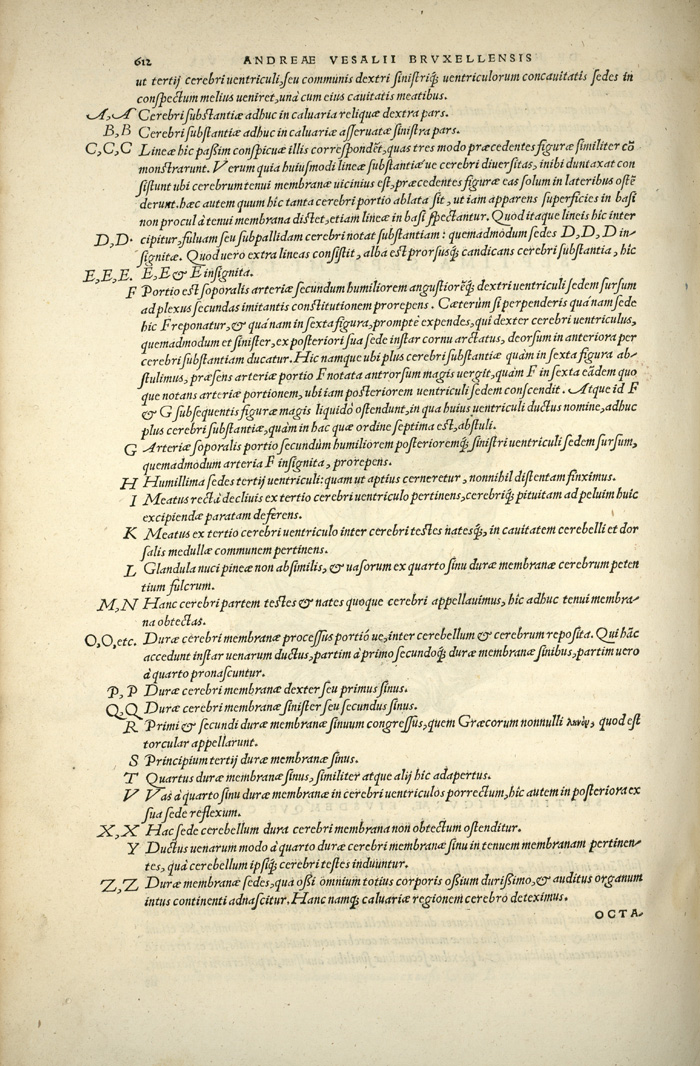 612 ANDREAE VESALII BRVXELLENSIS
ut tertij cerebri uentriculi, seu communis dextri sinistriq́; uentriculorum concauitatis sedes in
conspectum melius ueniret, unà cum eius cauitatis meatibus.
A, A Cerebri substantiæ adhuc in caluaria reliquæ dextra pars.
B, B Cerebri substantiæ adhuc in caluariæ asseruatæ sinistra pars.
C, C, C Lineæ hic paßim conspicuæ illis correspondẽt, quas tres modo præcedentes figuræ similiter cõ
monstrarunt. Verum quia huiusmodi lineæ substantiæ ue cerebri diuersitas, inibi duntaxat con
sistunt ubi cerebrum tenui membranæ uicinius est, præcedentes figuræ eas solum in lateribus ostẽ
derunt. hæc autem quum hic tanta cerebri portio ablata sit, ut iam apparens superficies in basi
non procul à tenui membrana distet, etiam lineæ in basi spectantur. Quod itaque lineis hic inter
D, D. cipitur, fuluam seu subpallidam cerebri notat substantiam: quemadmodum sedes D, D, D in-
signitæ. Quod uero extra lineas consistit, alba est prorsusq́; candicans cerebri substantia, hic
E, E, E. E, E & E insignita.
F Portio est soporalis arteriæ secundum humiliorem angustiorẽq́; dextri uentriculi sedem sursum
ad plexus secundas imitantis constitutionem prorepens. Cæterùm si perpenderis quánam sede
hic F reponatur, & quánam in sexta figura, promptè expendes, qui dexter cerebri uentriculus,
quemadmodum et sinister, ex posteriori sua sede instar cornu arctatus, deorsum in anteriora per
cerebri substantiam ducatur. Hic namque ubi plus cerebri substantiæ quàm in sexta figura ab-
stulimus, præsens arteriæ portio F notata antrorsum magis uergit, quàm F in sexta eãdem quo
que notans arteriæ portionem, ubi iam posteriorem uentriculi sedem conscendit. Atque id F
& G subsequentis figuræ magis liquidò ostendunt, in qua huius uentriculi ductus nomine, adhuc
plus cerebri substantiæ, quàm in hac quæ ordine septima est, abstuli.
G Arteriæ soporalis portio secundùm humiliorem posterioremq́; sinistri uentriculi sedem sursum,
quemadmodum arteria F insignita, prorepens.
H Humillima sedes tertij uentriculi: quam ut aptius cerneretur, nonnihil distentam finximus.
I Meatus rectà decliuis ex tertio cerebri uentriculo pertinens, cerebriq́; pituitam ad peluim huic
excipiendæ paratam deferens.
K Meatus ex tertio cerebri uentriculo inter cerebri testes natesq́;, in cauitatem cerebelli et dor
salis medullæ communem pertinens.
L Glandula nuci pineæ non absimilis, & uasorum ex quarto sinu duræ membranæ cerebrum peten
tium fulcrum.
M, N Hanc cerebri partem testes & nates quoque cerebri appellauimus, hic adhuc tenui membra-
na obtectas.
O, O, etc. Duræ cerebri membranæ processus portió ue, inter cerebellum & cerebrum reposita. Qui hãc
accedunt instar uenarum ductus, partim à primo secundoq́; duræ membranæ sinibus, partim uero
à quarto pronascuntur.
P, P Duræ cerebri membranæ dexter seu primus sinus.
Q, Q Duræ cerebri membranæ sinister seu secundus sinus.
R Primi & secundi duræ membranæ sinuum congressus, quem Græcorum nonnulli ληνόν, quod est
torcular appellarunt.
S Principium tertij duræ membranæ sinus.
T Quartus duræ membranæ sinus, similiter atque alij hic adapertus.
V Vas à quarto sinu duræ membranæ in cerebri uentriculos porrectum, hic autem in posteriora ex
sua sede reflexum.
X, X Hac sede cerebellum dura cerebri membrana non obtectum ostenditur.
Y Ductus uenarum modo à quarto duræ cerebri membranæ sinu in tenuem membranam pertinen-
tes, quà cerebellum ipsiq́; cerebri testes induuntur.
Z, Z Duræ membranæ sedes, qua ossi omnium totius corporis oßium durißimo, & auditus organum
intus continenti adnascitur. Hanc namq́; caluariæ regionem cerebro deteximus.
OCTA-